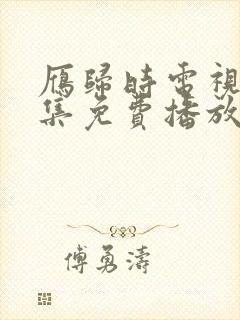 雁歸時電視
集免費播放
傅勇濤